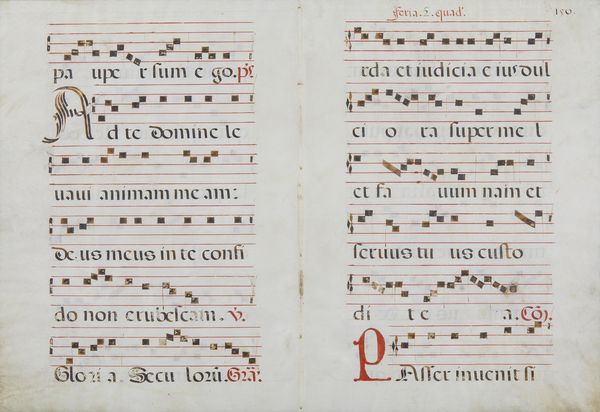 pa upe r sum e go. ps
Ad te domine le
vavi animam me am:
de us meus in te confi
do non erubescam. V.
Glori a. Secu lorū. Gra:
feria. 2. quad.
190.
rda et iudicia e ius dul
ci o ra super me l
et fa vum nam et
servus tu us custo
di t e a. Cō.
Passer invenit si